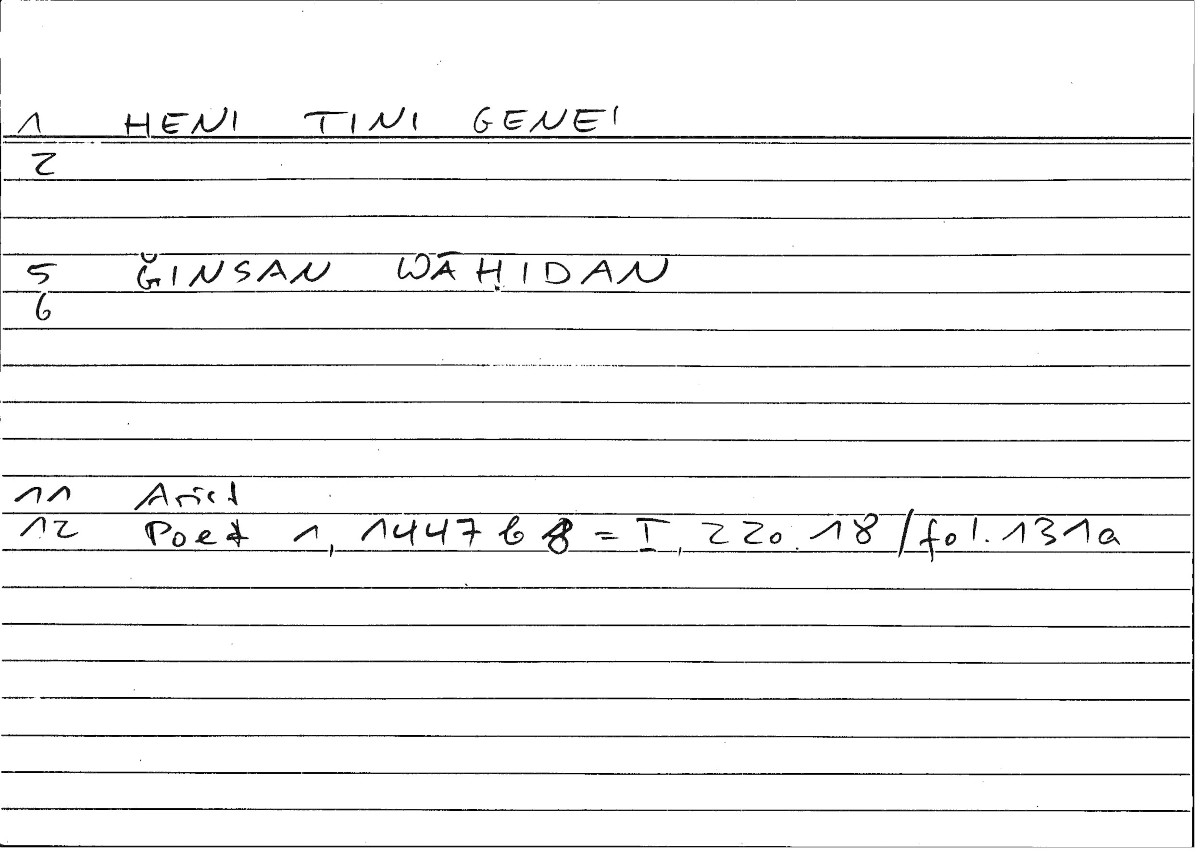 1 HENI TINI GENEI
2
5 ǦINSAN WĀḤIDAN
6
11 Arist
12 Poet 1, 1447 b 8 = I, 220.18/fol.131a